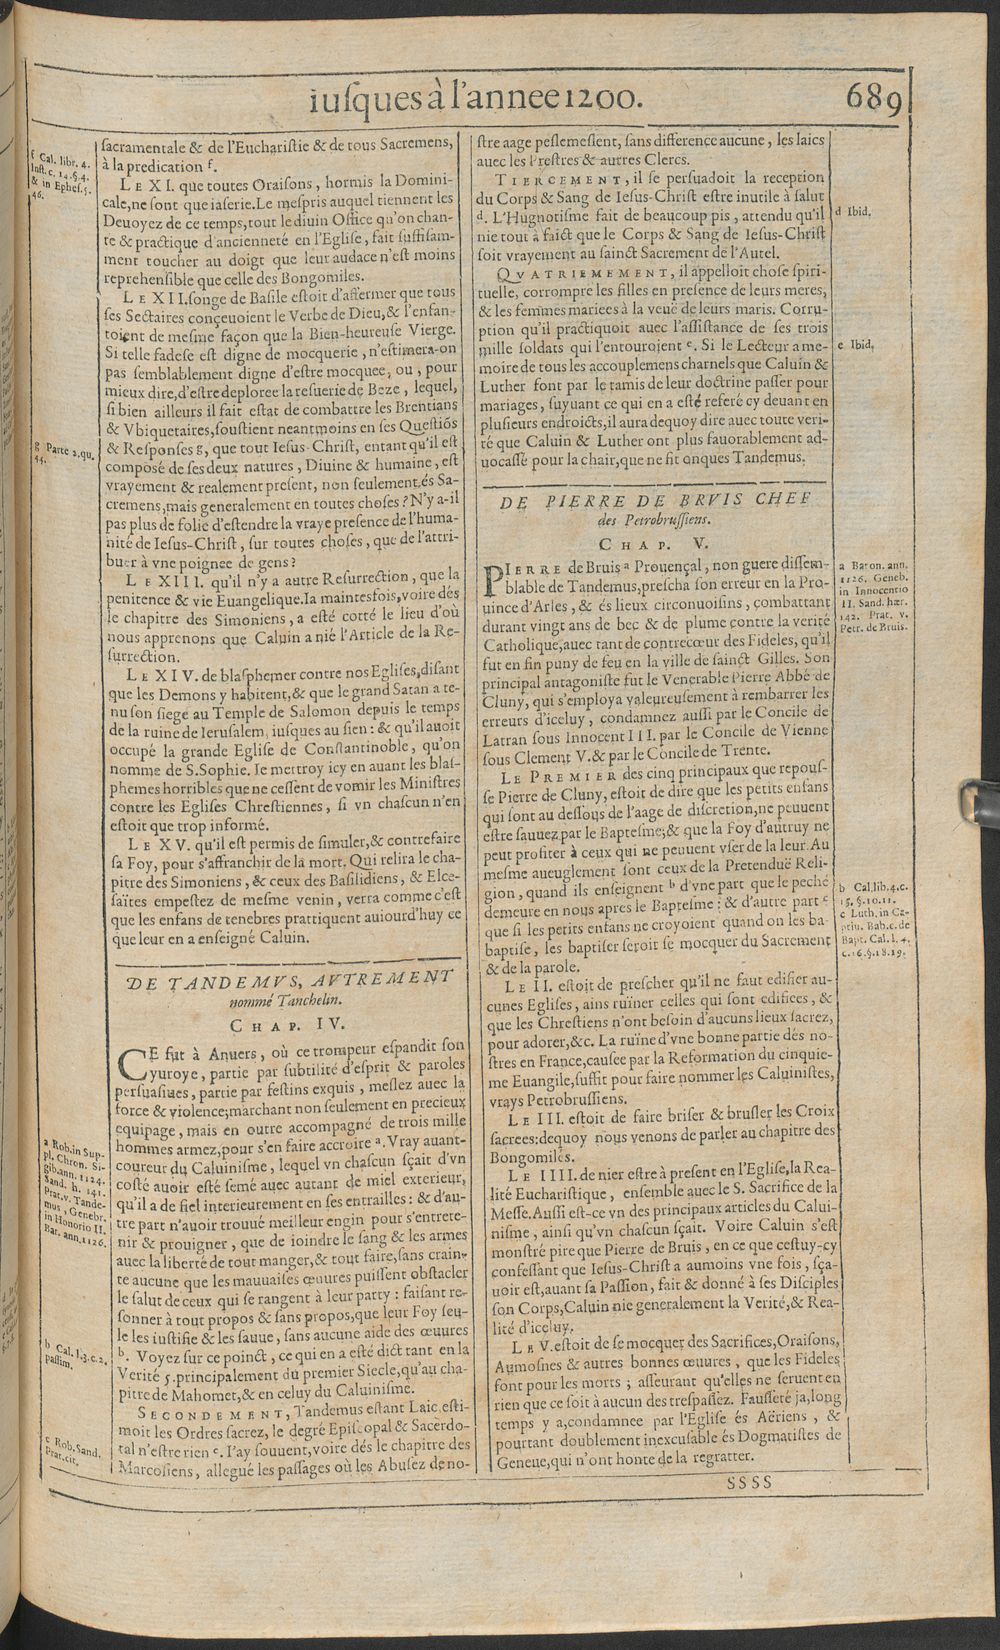 iusques à l'annee 1200. 689
sacramentale & de l'Eucharistie & de tous Sacremens,
à la predication f.
LE XI. que toutes Oraisons, hormis la Domini-
cale, ne sont que iaserie. Le mespris auquel tiennent les
Deuoyez de ce temps, tout le diuin Office qu'on chan-
te & practique d'ancienneté en l'Eglise, fait suffisam-
ment toucher au doigt que leur audace n'est moins
reprehensible que celle des Bongomiles.
LE XII. songe de Basile estoit d'affermer que tous
ses Sectaires conçeuoient le Verbe de Dieu, & l'enfan-
toient de mesme façon que la Bien-heureuse Vierge.
Si telle fadese est digne de mocquerie, n'estimera-on
pas semblablement digne d'estre mocquee, ou, pour
mieux dire, d'estre deploree la resuerie de Beze, lequel,
si bien ailleurs il fait estat de combattre les Brentians
& Vbiquetaires, soustient neantmoins en ses Questiõs
& Responses g, que tout Iesus-Christ, entant qu'il est
composé de ses deux natures, Diuine & humaine, est
vrayement & realement present, non seulement és Sa-
cremens, mais generalement en toutes choses? N'y a-il
pas plus de folie d'estendre la vraye presence de l'huma-
nité de Iesus-Christ, sur toutes choses, que de l'attri-
buer à vne poignee de gens?
LE XIII. qu'il n'y a autre Resurrection, que la
penitence & vie Euangelique. Ia maintesfois, voire dés
le chapitre des Simoniens, a esté cotté le lieu d'où
nous apprenons que Caluin a nié l'Article de la Re-
surrection.
LE XIV. de blasphemer contre nos Eglises, disant
que les Demons y habitent, & que le grand Satan a te-
nu son siege au Temple de Salomon depuis le temps
de la ruine de Ierusalem, iusques au sien: & qu'il auoit
occupé la grande Eglise de Constantinoble, qu'on
nomme de S. Sophie. Ie mettroy icy en auant les blas-
phemes horribles que ne cessent de vomir les Ministres
contre les Eglises Chrestiennes, si vn chascun n'en
estoit que trop informé.
LE XV. qu'il est permis de simuler, & contrefaire
sa Foy, pour s'affranchir de la mort. Qui relira le cha-
pitre des Simoniens, & ceux des Basilidiens, & Elce-
saïtes empestez de mesme venin, verra comme c'est
que les enfans de tenebres prattiquent auiourd'huy ce
que leur en a enseigné Caluin.
DE TANDEMVS, AVTREMENT
nommé Tanchelin.
CHAP. IV.
CE fut à Anuers, où ce trompeur espandit son
yuroye, partie par subtilité d'esprit & paroles
persuasiues, partie par festins exquis, meslez auec la
force & violence; marchant non seulement en precieux
equipage, mais en outre accompagné de trois mille
hommes armez, pour s'en faire accroire a. Vray auant-
coureur du Caluinisme, lequel vn chascun sçait d'vn
costé auoir esté semé auec autant de miel exterieur,
qu'il a de fiel interieurement en ses entrailles: & d'au-
tre part n'auoir trouué meilleur engin pour s'entrete-
nir & prouigner, que de ioindre le sang & les armes
auec la liberté de tout manger, & tout faire, sans crain-
te aucune que les mauuaises œuures puissent obstacler
le salut de ceux qui se rangent à leur party: faisant re-
sonner à tout propos & sans propos, que leur Foy seu-
le les iustifie & les sauue, sans aucune aide des œuures
b. Voyez sur ce poinct, ce qui en a esté dict tant en la
Verité 5. principalement du premier Siecle, qu'au cha-
pitre de Mahomet, & en celuy du Caluinisme.
SECONDEMENT, Tandemus estant Laic, esti-
moit les Ordres sacrez, le degré Episcopal & Sacerdo-
tal n'estre rien c. I'ay souuent, voire dés le chapitre des
Marcosiens, allegué les passages où les Abusez de no-
f Cal. libr. 4.
Inst. c. 14. §. 4.
& in Ephes. 5.
46.
g Parte 2. qu.
44.
a Rob. in Sup-
pl. Chron. Si-
gib. ann. 1124.
Sand. h. 141.
Prat. v. Tande-
mus, Genebr.
in Honorio II.
Bar. ann. 1126.
b Cal. l. 3. c. 2.
passim.
c Rob. Sand.
Prat. cit.
stre aage peslemeslent, sans difference aucune, les laics
auec les Prestres & autres Clercs.
TIERCEMENT, il se persuadoit la reception
du Corps & Sang de Iesus-Christ estre inutile à salut
d. L'Hugnotisme fait de beaucoup pis, attendu qu'il
nie tout à faict que le Corps & Sang de Iesus-Christ
soit vrayement au sainct Sacrement de l'Autel.
QVATRIEMEMENT, il appelloit chose spiri-
tuelle, corrompre les filles en presence de leurs meres,
& les femmes mariees à la veuë de leurs maris. Corru-
ption qu'il practiquoit auec l'assistance de ses trois
mille soldats qui l'entouroient e. Si le Lecteur a me-
moire de tous les accouplemens charnels que Caluin &
Luther font par le tamis de leur doctrine passer pour
mariages, suyuant ce qui en a esté referé cy deuant en
plusieurs endroicts, il aura dequoy dire auec toute veri-
té que Caluin & Luther ont plus fauorablement ad-
uocassé pour la chair, que ne fit onques Tandemus.
DE PIERRE DE BRVIS CHEF
des Petrobrussiens.
CHAP. V.
PIERRE de Bruis a Prouençal, non guere dissem-
blable de Tandemus, prescha son erreur en la Pro-
uince d'Arles, & és lieux circonuoisins, combattant
durant vingt ans de bec & de plume contre la verité
Catholique, auec tant de contrecœur des Fideles, qu'il
fut en fin puny de feu en la ville de sainct Gilles. Son
principal antagoniste fut le Venerable Pierre Abbé de
Cluny, qui s'employa valeureusement à rembarrer les
erreurs d'iceluy, condamnez aussi par le Concile de
Latran sous Innocent III. par le Concile de Vienne
sous Clement V. & par le Concile de Trente.
LE PREMIER des cinq principaux que repous-
se Pierre de Cluny, estoit de dire que les petits enfans
qui sont au dessous de l'aage de discretion, ne peuuent
estre sauuez par le Baptesme; & que la Foy d'autruy ne
peut profiter à ceux qui ne peuuent vser de la leur. Au
mesme aueuglement sont ceux de la Pretenduë Reli-
gion, quand ils enseignent b d'vne part que le peché
demeure en nous apres le Baptesme: & d'autre part c
que si les petits enfans ne croyoient quand on les ba-
baptise, les baptiser seroit se mocquer du Sacrement
& de la parole.
LE II. estoit de prescher qu'il ne faut edifier au-
cunes Eglises, ains ruïner celles qui sont edifices, &
que les Chrestiens n'ont besoin d'aucuns lieux sacrez,
pour adorer, &c. La ruïne d'vne bonne partie des no-
stres en France, causee par la Reformation du cinquie-
me Euangile, suffit pour faire nommer les Caluinistes,
vrays Petrobrussiens.
LE III. estoit de faire briser & brusler les Croix
sacrees: dequoy nous venons de parler au chapitre des
Bongomiles.
LE IIII. de nier estre à present en l'Eglise, la Rea-
lité Eucharistique, ensemble auec le S. Sacrifice de la
Messe. Aussi est-ce vn des principaux articles du Calui-
nisme, ainsi qu'vn chascun sçait. Voire Caluin s'est
monstré pire que Pierre de Bruis, en ce que cestuy-cy
confessant que Iesus-Christ a aumoins vne fois, sça-
uoir est, auant sa Passion, fait & donné à ses Disciples
son Corps, Caluin nie generalement la Verité, & Rea-
lité d'iceluy.
LE V. estoit de se mocquer des Sacrifices, Oraisons,
Aumosnes & autres bonnes œuures, que les Fideles
font pour les morts; asseurant qu'elles ne seruent en
rien que ce soit à aucun des trespassez. Fausseté ja, long
temps y a, condamnee par l'Eglise és Aëriens, &
pourtant doublement inexcusable és Dogmatistes de
Geneue, qui n'ont honte de la regratter.
d Ibid.
e Ibid.
a Baron. ann.
1126. Geneb.
in Innocentio
II. Sand. hær.
142. Prat. v.
Petr. de Bruis.
b Cal. lib. 4. c.
15. §. 10. 11.
c Luth. in Ca-
ptiu. Bab. c. de
Bapt. Cal. l. 4.
c. 16. §. 18. 19.
SSSS